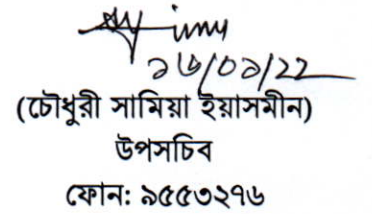 ১৬/০১/২২
(চৌধুরী সামিয়া ইয়াসমীন)
উপসচিব
ফোন: ৯৫৫৩২৭৬